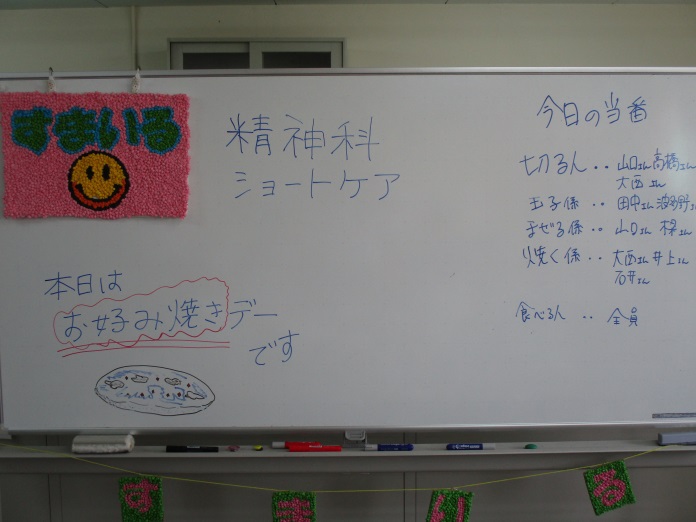 すまいる
精神科
ショートケア
本日は
お好み焼きデー
です
今日の当番
切るん‥山口さん高橋さん
大西さん
玉子係‥田中さん波多野さん
まぜる係‥山口さん
焼く係‥大西さん井上さん
石井さん
食べるん‥全員
すまいる